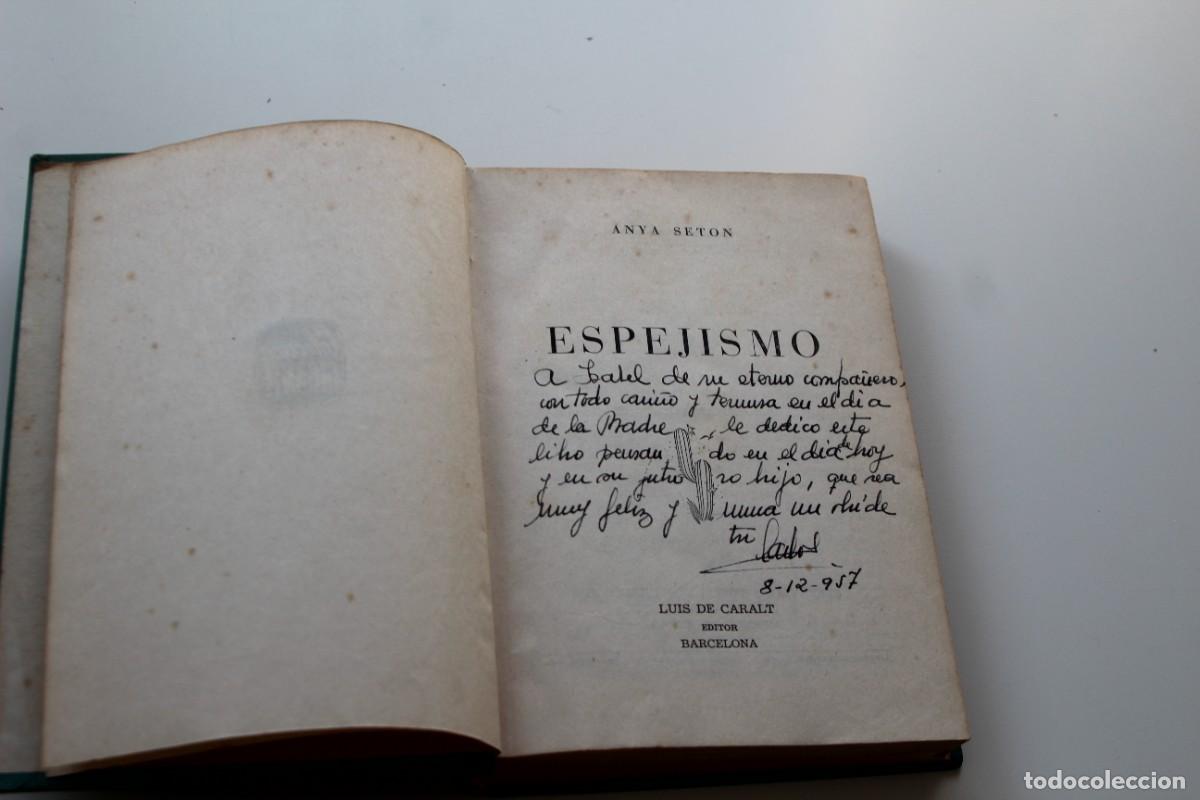 ANYA SETON
ESPEJISMO
A Isabel de su eterno compañero,
con todo cariño y ternura en el dia
de la Madre le dedico este
libro pensando en el dia de hoy
y en su futuro hijo, que sea
muy feliz y nunca me olvide
tu Carlos
8-12-957
LUIS DE CARALT
EDITOR
BARCELONA
todocoleccion